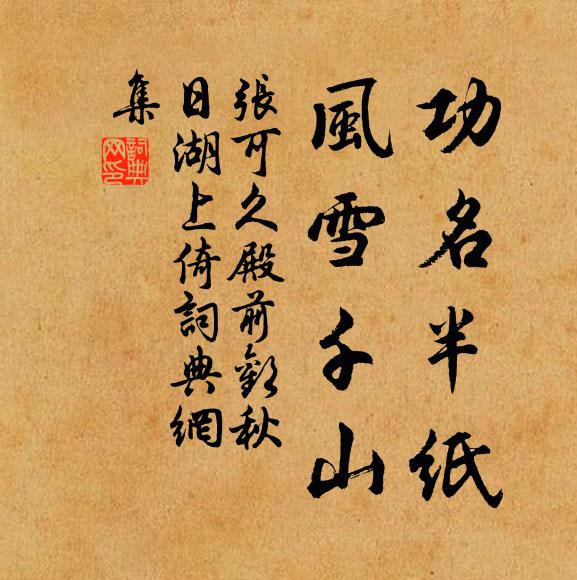 功名半紙
風雪千山
張可久殿前歡秋
日湖上倚詞典網
集
詞典網印